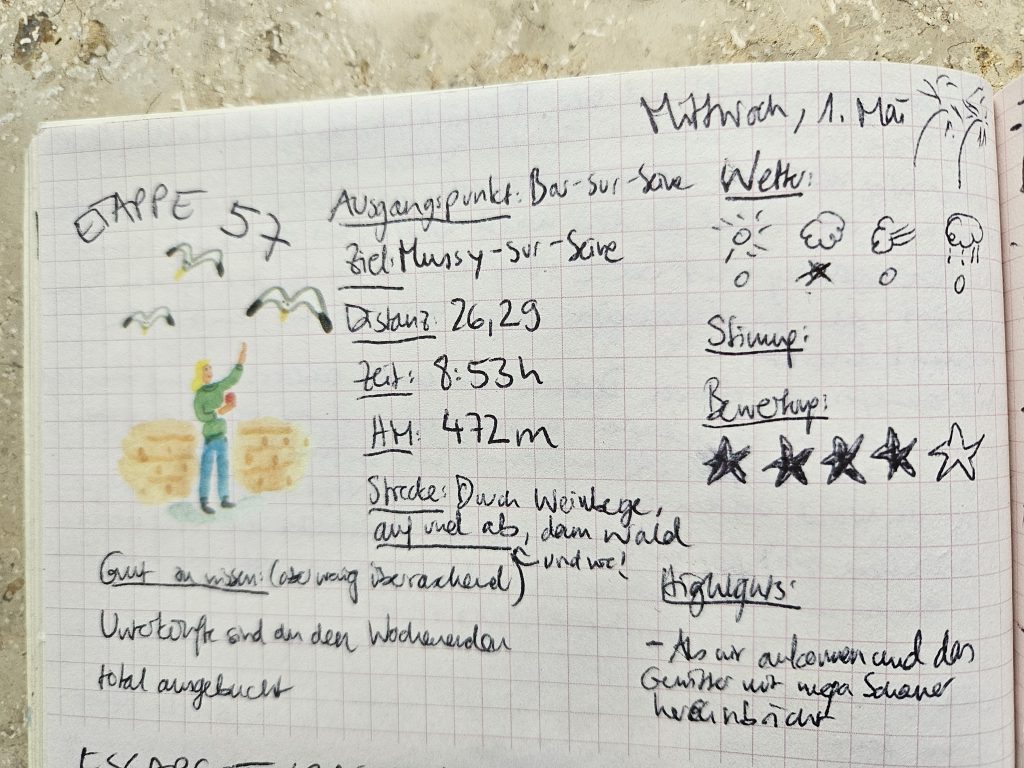 Mittwoch, 1. Mai
ETAPPE 57
Ausgangspunkt: Bar-sur-Seine
Ziel: Mussy-sur-Seine
Distanz: 26,29
Zeit: 8:53h
HM: 472m
Strecke: Durch Weinberge,
auf und ab, dann Wald
und wie!
Wetter:
Stimmung:
Bewertung:
Gut zu wissen: (aber wenig überraschend)
Unterkünfte sind an den Wochenenden
total ausgebucht
Highlights:
- Als wir ankommen und das
Gewitter mit mega Schauer
hereinbricht